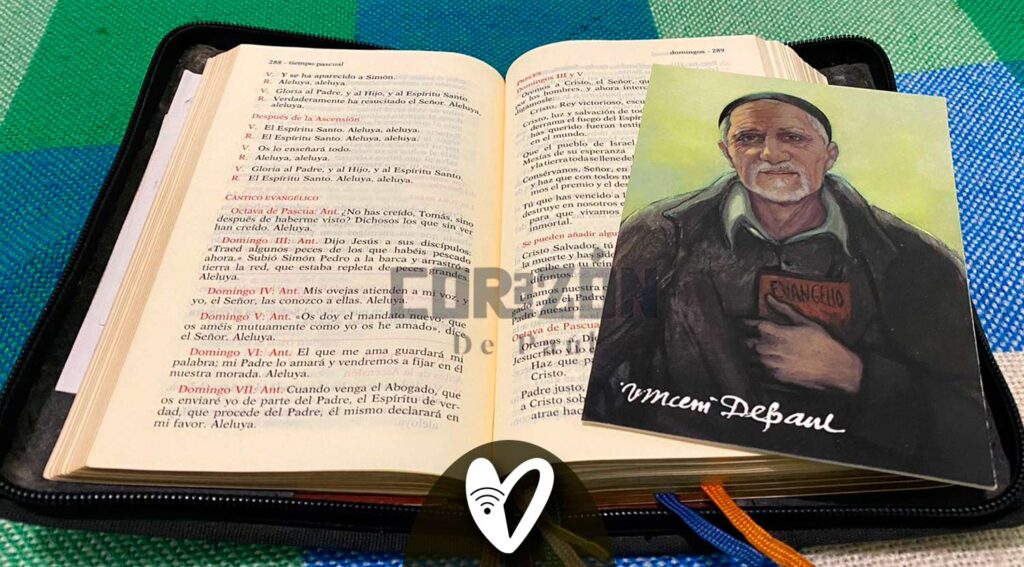 288 - tiempo pascual
V. Y se ha aparecido a Simón.
R. Aleluya, aleluya.
V. Gloria al Padre, y al Hijo, y al Espíritu Santo.
R. Verdaderamente ha resucitado el Señor. Aleluya,
aleluya.
Después de la Ascensión
V. El Espíritu Santo. Aleluya, aleluya.
R. El Espíritu Santo. Aleluya, aleluya.
V. Os lo enseñará todo.
R. Aleluya, aleluya.
V. Gloria al Padre, y al Hijo, y al Espíritu Santo.
R. El Espíritu Santo. Aleluya, aleluya.
CÁNTICO EVANGÉLICO
Octava de Pascua: Ant. ¿No has creído, Tomás, sino
después de haberme visto? Dichosos los que sin ver
han creído. Aleluya.
Domingo III: Ant. Dijo Jesús a sus discípulos:
«Traed algunos peces de los que habéis pescado
ahora.» Subió Simón Pedro a la barca y arrastró a
tierra la red, que estaba repleta de peces grandes.
Aleluya.
Domingo IV: Ant. Mis ovejas atienden a mi voz, y
yo, el Señor, las conozco a ellas. Aleluya.
Domingo V: Ant. «Os doy el mandato nuevo: que
os améis mutuamente como yo os he amado», dice
el Señor. Aleluya.
Domingo VI: Ant. El que me ama guardará mi
palabra; mi Padre lo amará y vendremos a fijar en él
nuestra morada. Aleluya.
Domingo VII: Ant. Cuando venga el Abogado, que
os enviaré yo de parte del Padre, el Espíritu de ver-
dad, que procede del Padre, él mismo declarará en
mi favor. Aleluya.
domingos - 289
PRECES
Domingos III y V
Oremos a Cristo, el Señor, que
por los hombres, y ahora interc
digámosle:
Cristo, Rey victorioso, escu
Cristo, luz y salvación de tod
derrama el fuego del Espír
has querido fueran testig
en el mundo.
Que el pueblo de Israel
Mesías de su esperanza
y la tierra toda se llene de
Consérvanos, Señor, en
y haz que con todos nu
mos el premio y el des
Tú que has vencido a l
destruye en nosotros e
para que vivamos
inmortal.
Se pueden añadir algu
Cristo Salvador, tú
la muerte y has sido
recibe en tu rein
difuntos.
Unamos nuestra o
gado ante el Padre
Padre nuestro.
Octava de Pascua
Oremos: Dio
Jesucristo
Haz que pa
Cristo.
Padre justo,
a Cristo sob
atrae hac
EVANGELIO
Vincent Depaul